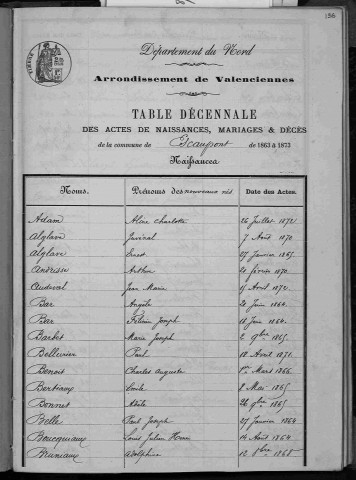 156
TIMBRE
Département du Nord
Arrondissement de Valenciennes
TABLE DÉCENNALE
DES ACTES DE NAISSANCES, MARIAGES & DÉCÈS
de la commune de Escautpont de 1863 à 1873
Naissances
Noms. Prénoms des nouveaux nés Date des Actes.
Adam Alcine Charlotte 26 Juillet 1872
Alglave Juvénal 7 Août 1870
Alglave Ernest 27 Janvier 1865
Andrieu Arthur 20 février 1870
Audeval Jean Marie 15 Avril 1872
Bar Angèle 20 Juin 1864
Bar Félicien Joseph 18 Juin 1864
Barbet Marie Joseph 2 9bre 1865
Bellevrier Paul 18 Avril 1871
Benoit Charles Auguste 1er Mars 1866
Berteaux Emile 8 Mai 1865
Bonnet Adèle 26 9bre 1865
Belle Paul Joseph 27 Janvier 1864
Boucquiaux Louis Julien Henri 14 Août 1864
Bruniaux Adolphine 12 8bre 1868